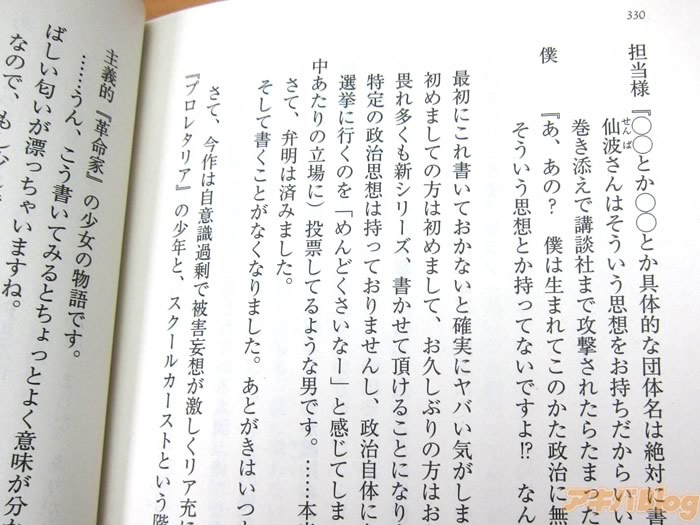 330
担当様『○○とか○○とか具体的な団体名は絶対に書
仙波さんはそういう思想をお持ちだからい
せんば
巻き添えで講談社まで攻撃されたらたまった
僕
『あ、あの? 僕は生まれてこのかた政治に無
そういう思想とか持ってないですよ!? なん
最初にこれ書いておかないと確実にヤバい気がしま
初めましての方は初めまして、お久しぶりの方はお
畏れ多くも新シリーズ、書かせて頂けることになり
特定の政治思想は持っておりませんし、政治自体にも
選挙に行くのを「めんどくさいなー」と感じてしま
中あたりの立場に)投票してるような男です。……本当
さて、弁明は済みました。
そして書くことがなくなりました。あとがきはいつ
さて、今作は自意識過剰で被害妄想が激しくリア充に
『プロレタリア』の少年と、スクールカーストという階
主義的『革命家』の少女の物語です。
……うん、こう書いてみるとちょっとよく意味が分
ばしい匂いが漂っちゃいますね。
なので、もし
アキバBlog